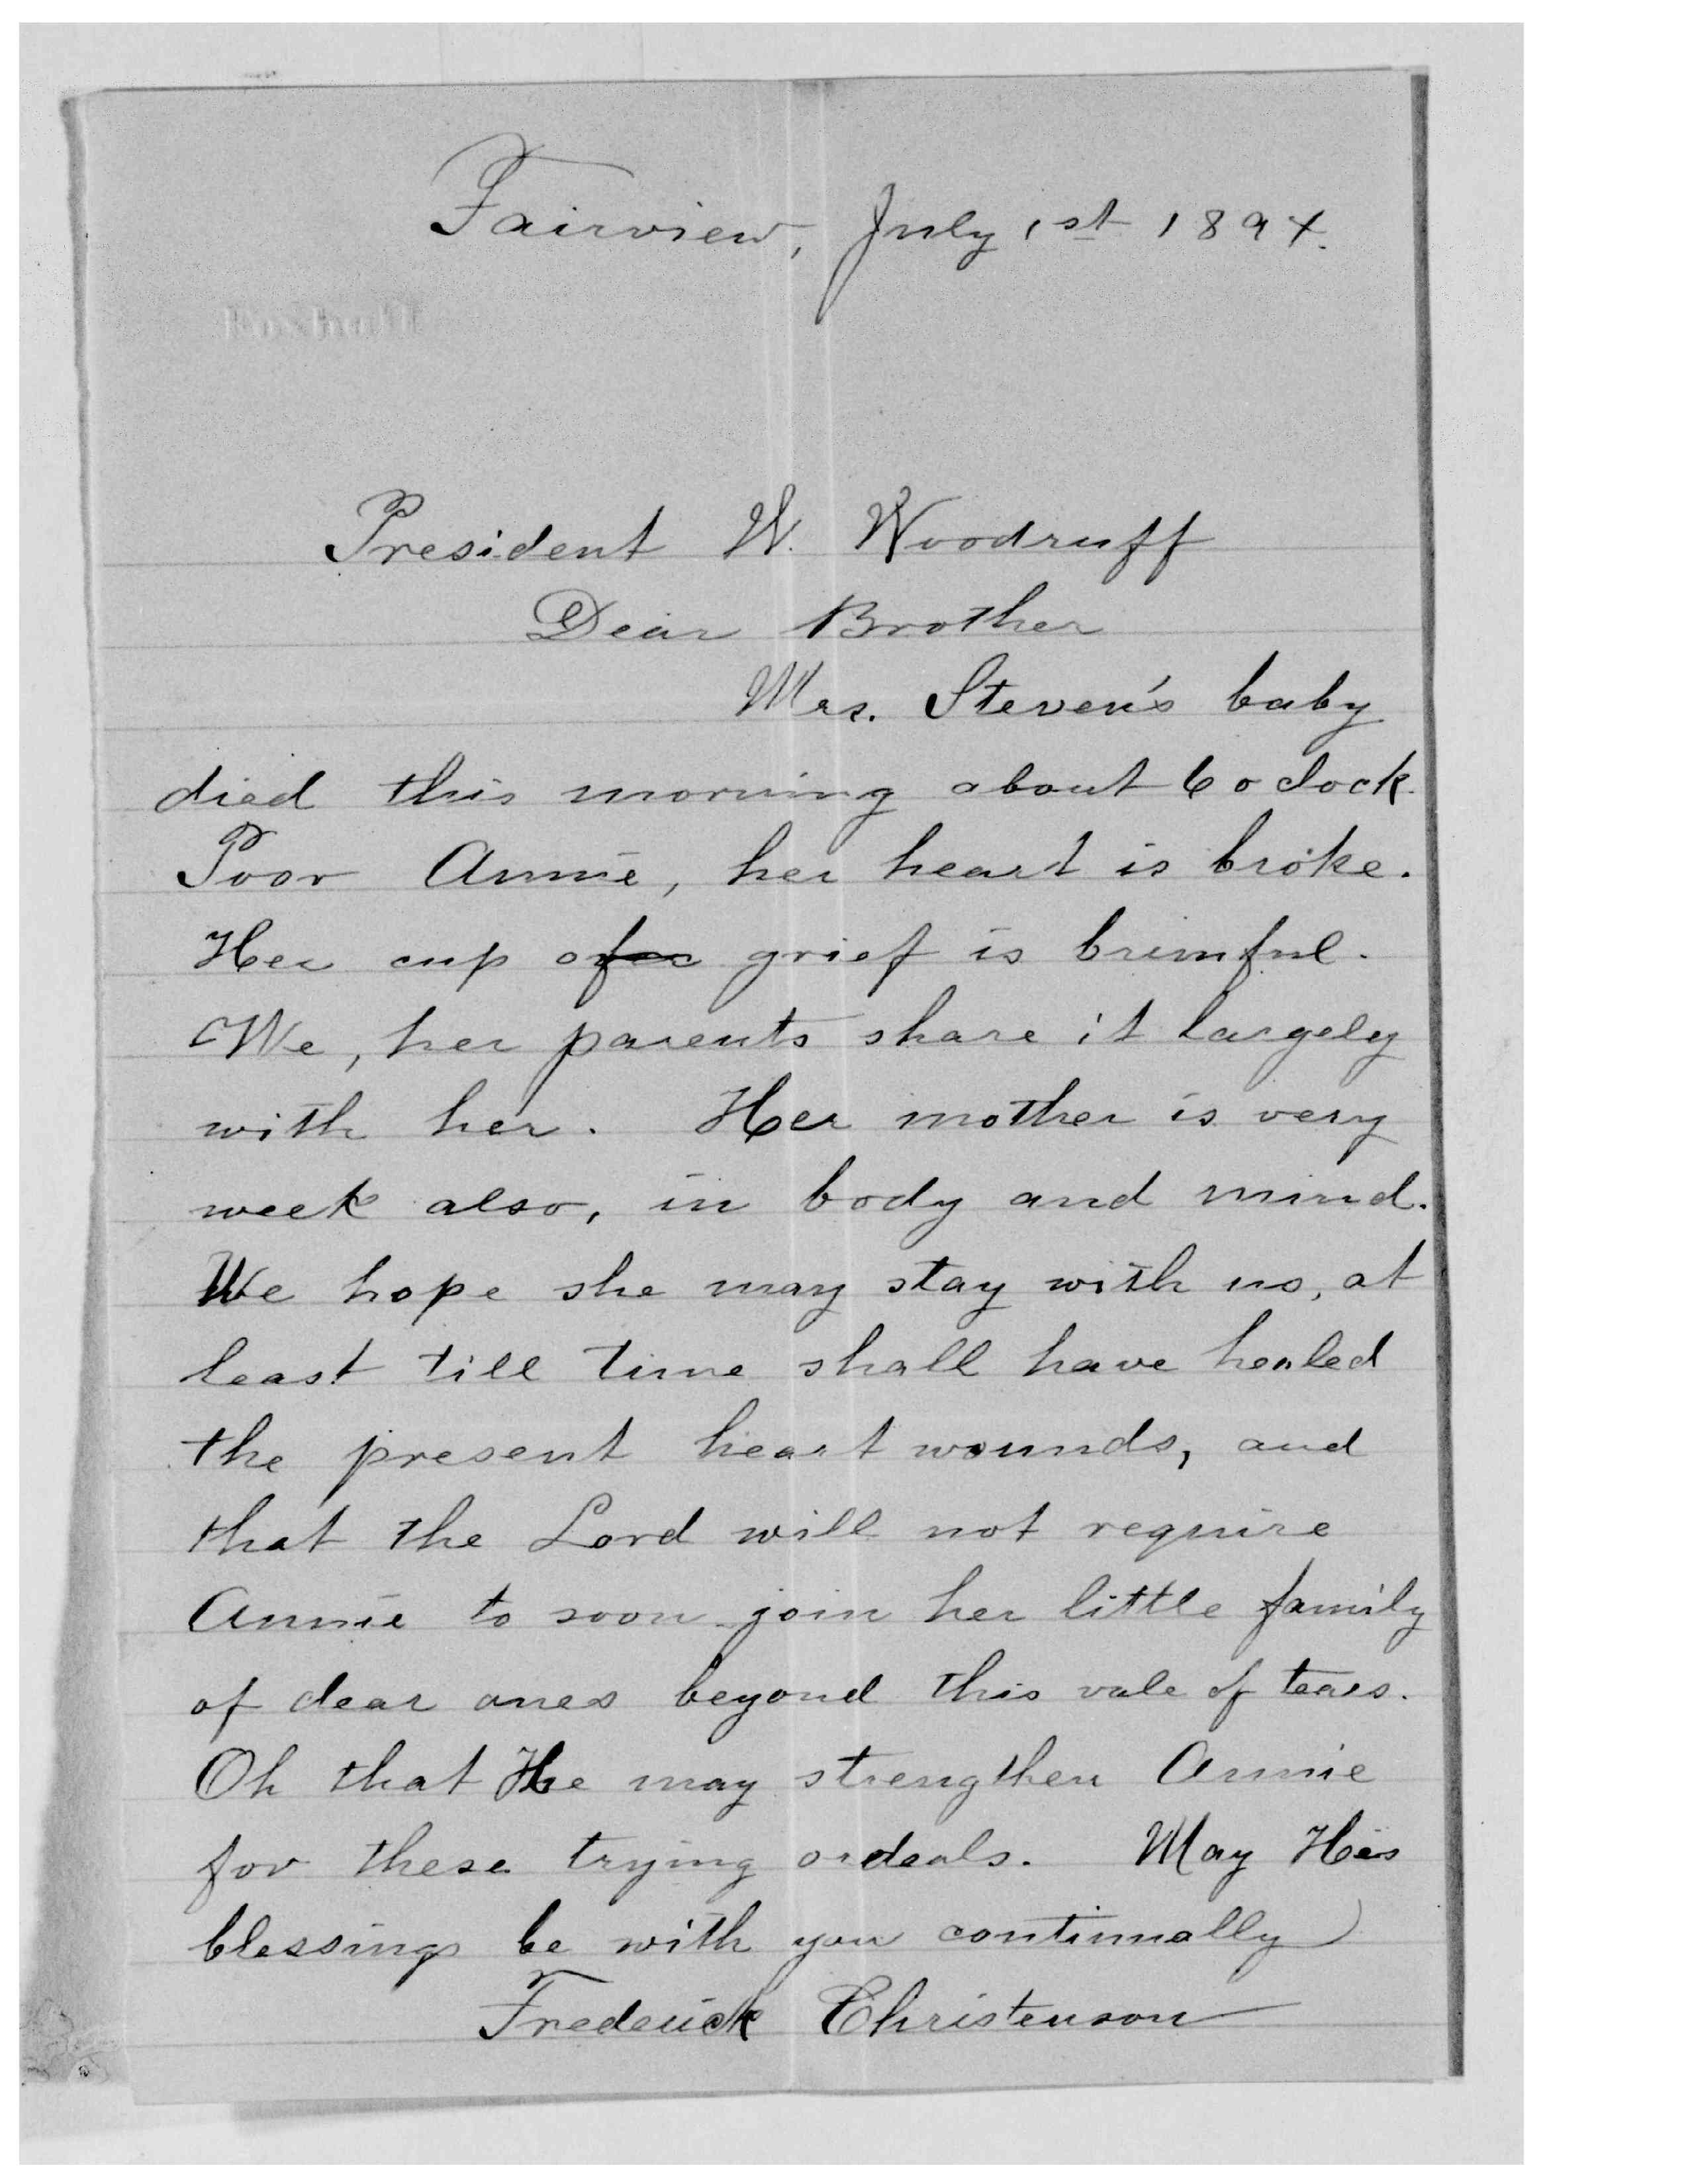 Fairview, July 1st 1894.
President W. Woodruff
Dear Brother
Mrs. Steven's baby
died this morning about 6 o clock.
Poor Annie, her heart is broke.
Her cup of grief is brimful.
We, her parents share it largely
with her. Her mother is very
week also, in body and mind.
We hope she may stay with us, at
least till time shall have healed
the present heart wounds, and
that the Lord will not require
Annie to soon join her little family
of dear ones beyond this vale of tears.
Oh that He may strengthen Annie
for these trying ordeals. May His
blessings be with you continually
Frederick Christenson